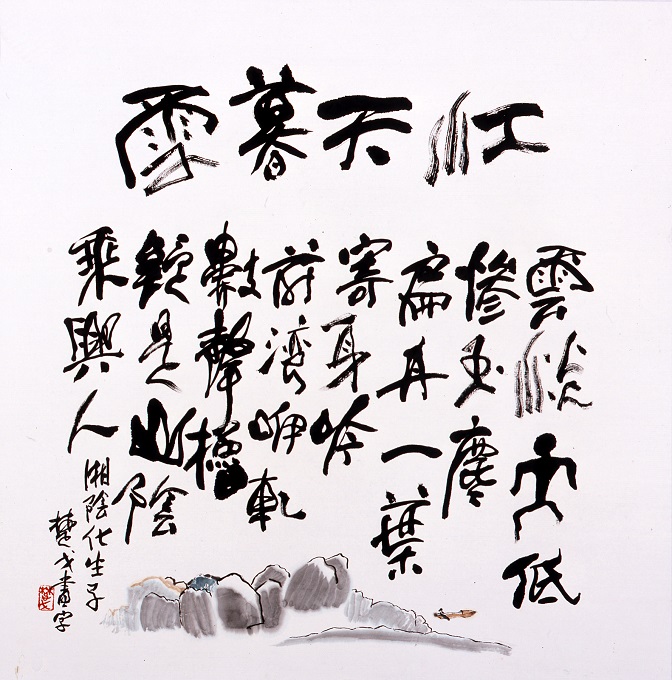 江天暮雪
雲淡天低
慘玉塵
扁舟一葉
寄身吟
前湾咿軋
數聲櫓
疑是山陰
乘興人
湘陰化生子
楚戈畫字